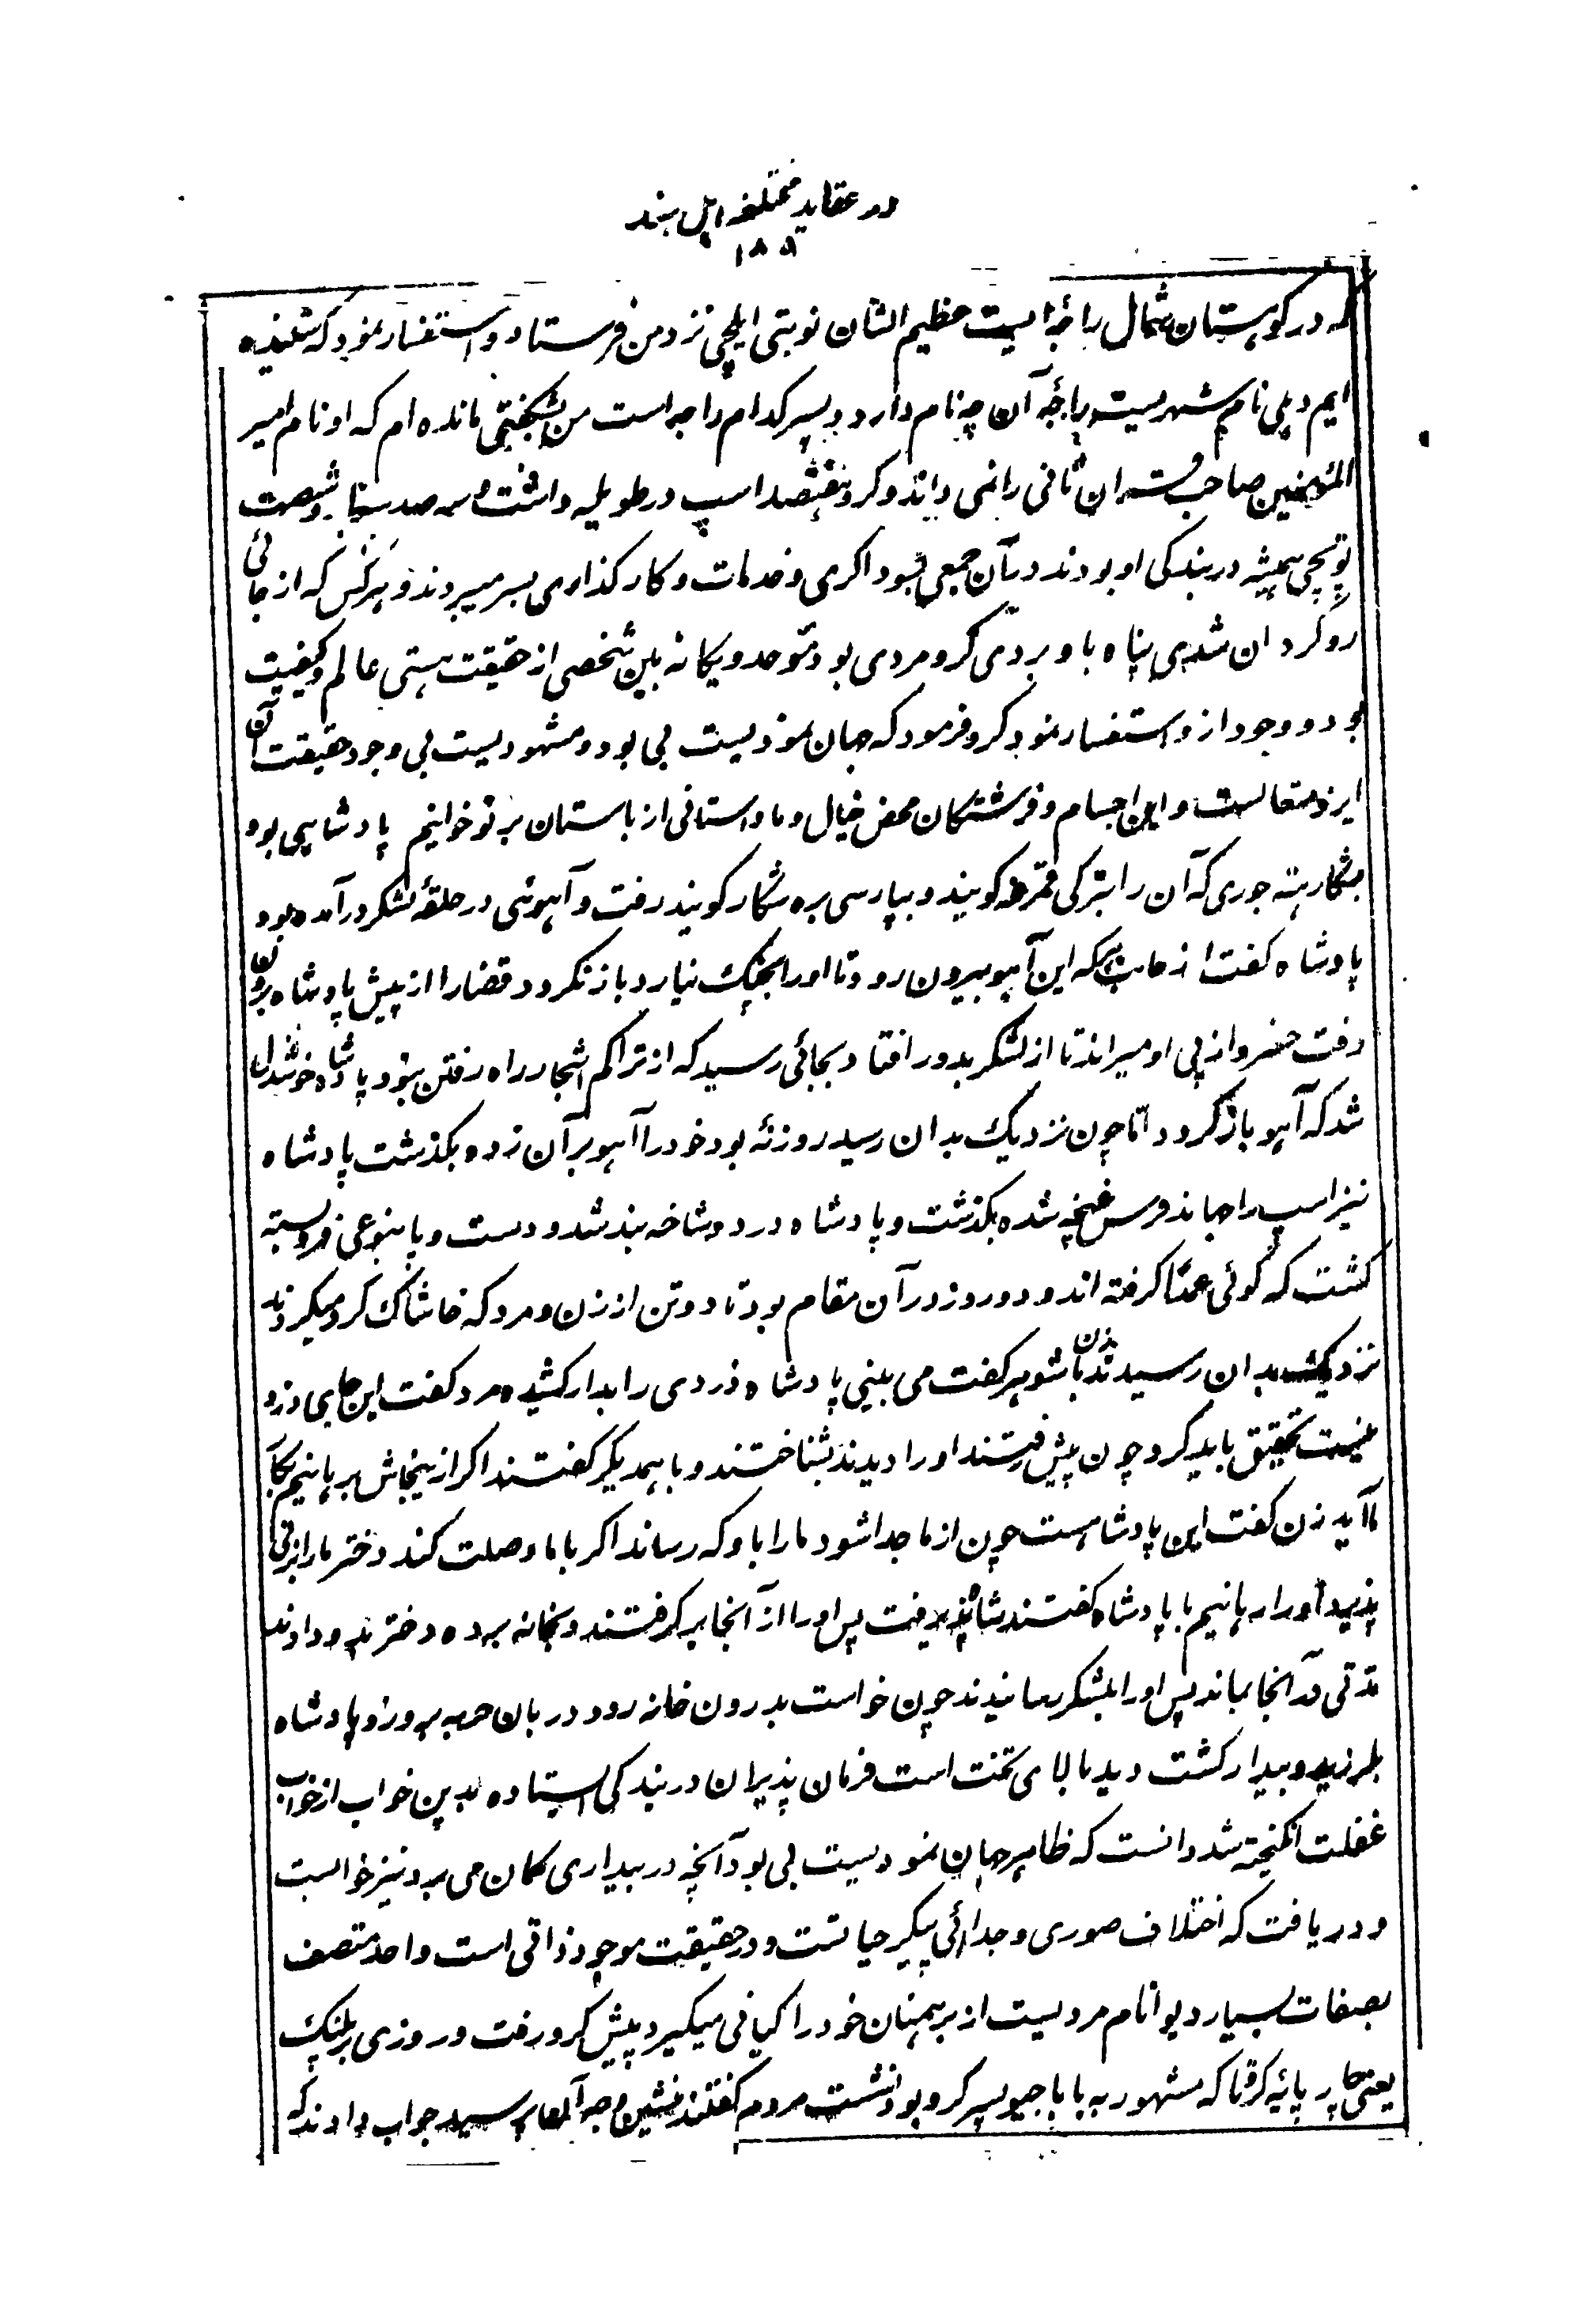 در عقاید مختلفه اهل هند
۱۸۵
که در کوهستان شمال راجهٔ ایست عظیم الشان نوبتی ایلچی نزد من فرستاد و استفسار نمود که شنیده
ایم دهلی نام شهریست راجهٔ آن چه نام دارد و پسر کدام راجه است من بشگفتی مانده ام که او نام امیر
المؤمنین صاحب قران ثانی را نمی داند و کرو هفتصد اسپ در طویله داشت و سه صد سپاه و شصت
توپچی همیشه در بندگی او بودند و بآن جمعی بسوداگری و خدمات و کارگذاری بسر میبردند و هرکس که از جائی
روگردان شدی پناه باو بردی کرو مردی بود موحد و یگانه بین شخصی از حقیقت هستی عالم و کیفیت
بود و وجود از و استفسار نمود کرو فرمود که جهان نمودیست بی بود و مشهودیست بی وجود حقیقت آن
ایزد متعالست و این اجسام و فرشتگان محض خیال و ما داستانی از باستان بر تو خوانیم پادشاهی بود
بشکار هته جوری که آن را بترکی قمرغه گویند و بپارسی بره شکار گویند رفت و آهوئی در حلقهٔ لشکر درآمده بود
پادشاه گفت از جانب هرکه این آهو بیرون رود تا اورا بچنگ نیارد باز نگردد قضارا از پیش پادشاه برون
رفت خسرو از پی او میراند تا از لشکر بدور افتاد بجائی رسید که از تراکم اشجار راه رفتن نبود پادشاه خوشدل
شد که آهو باز گردد اما چون نزدیک بدان رسید روزنهٔ بود خود را آهو بر آن زده بگذشت پادشاه
نیز اسپ را جهاند فرس غنچه شده بگذشت و پادشاه در دوشاخه بند شد و دست و پا بنوعی فروبسته
گشت که گوئی عمداً گرفته اند و دو روز در آن مقام بود تا دو تن از زن و مرد که خاشاک گرد میکردند
نزدیک بدان رسیدند زن با شوهر گفت می بینی پادشاه دزدی را بدار کشیده مرد گفت این جای دزد
نیست تحقیق باید کرد چون پیش رفتند اورا دیدند بشناختند و با همدیگر گفتند اگر ازینجاش برهانیم بکار
ما آید زن گفت این پادشاهست چون از ما جدا شود ما را باو که رساند اگر با ما وصلت کند دختر ما را بزنی
پذیرد اورا رهانیم با پادشاه گفتند شاه پذیرفت پس اورا از آنجا برگرفتند و بخانه برده دختر بدو دادند
مدتی در آنجا بماند پس اورا بلشکر رسانیدند چون خواست بدرون خانه رود دربان چوبه برو زد پادشاه
بلرزید و بیدار گشت دید بالای تخت است فرمان پذیران در بندگی استاده بدین خواب از خواب
غفلت انگیخته شد دانست که ظاهر جهان نمودیست بی بود آنچه در بیداری گمان می برد نیز خوابست
و دریافت که اختلاف صوری و جدائی پیکر حیاتست و در حقیقت موجود ذاتی است واحد متصف
بصفات بسیار دیوانام مردیست از برهمنان خود را گیانی میگیرد پیش کرو رفت و روزی بر پلنگ
یعنی چارپائیه کرتا که مشهور به باباجیو پسر کرو بود نشست مردم گفتند منشین وجه آنها پرسید جواب دادند که